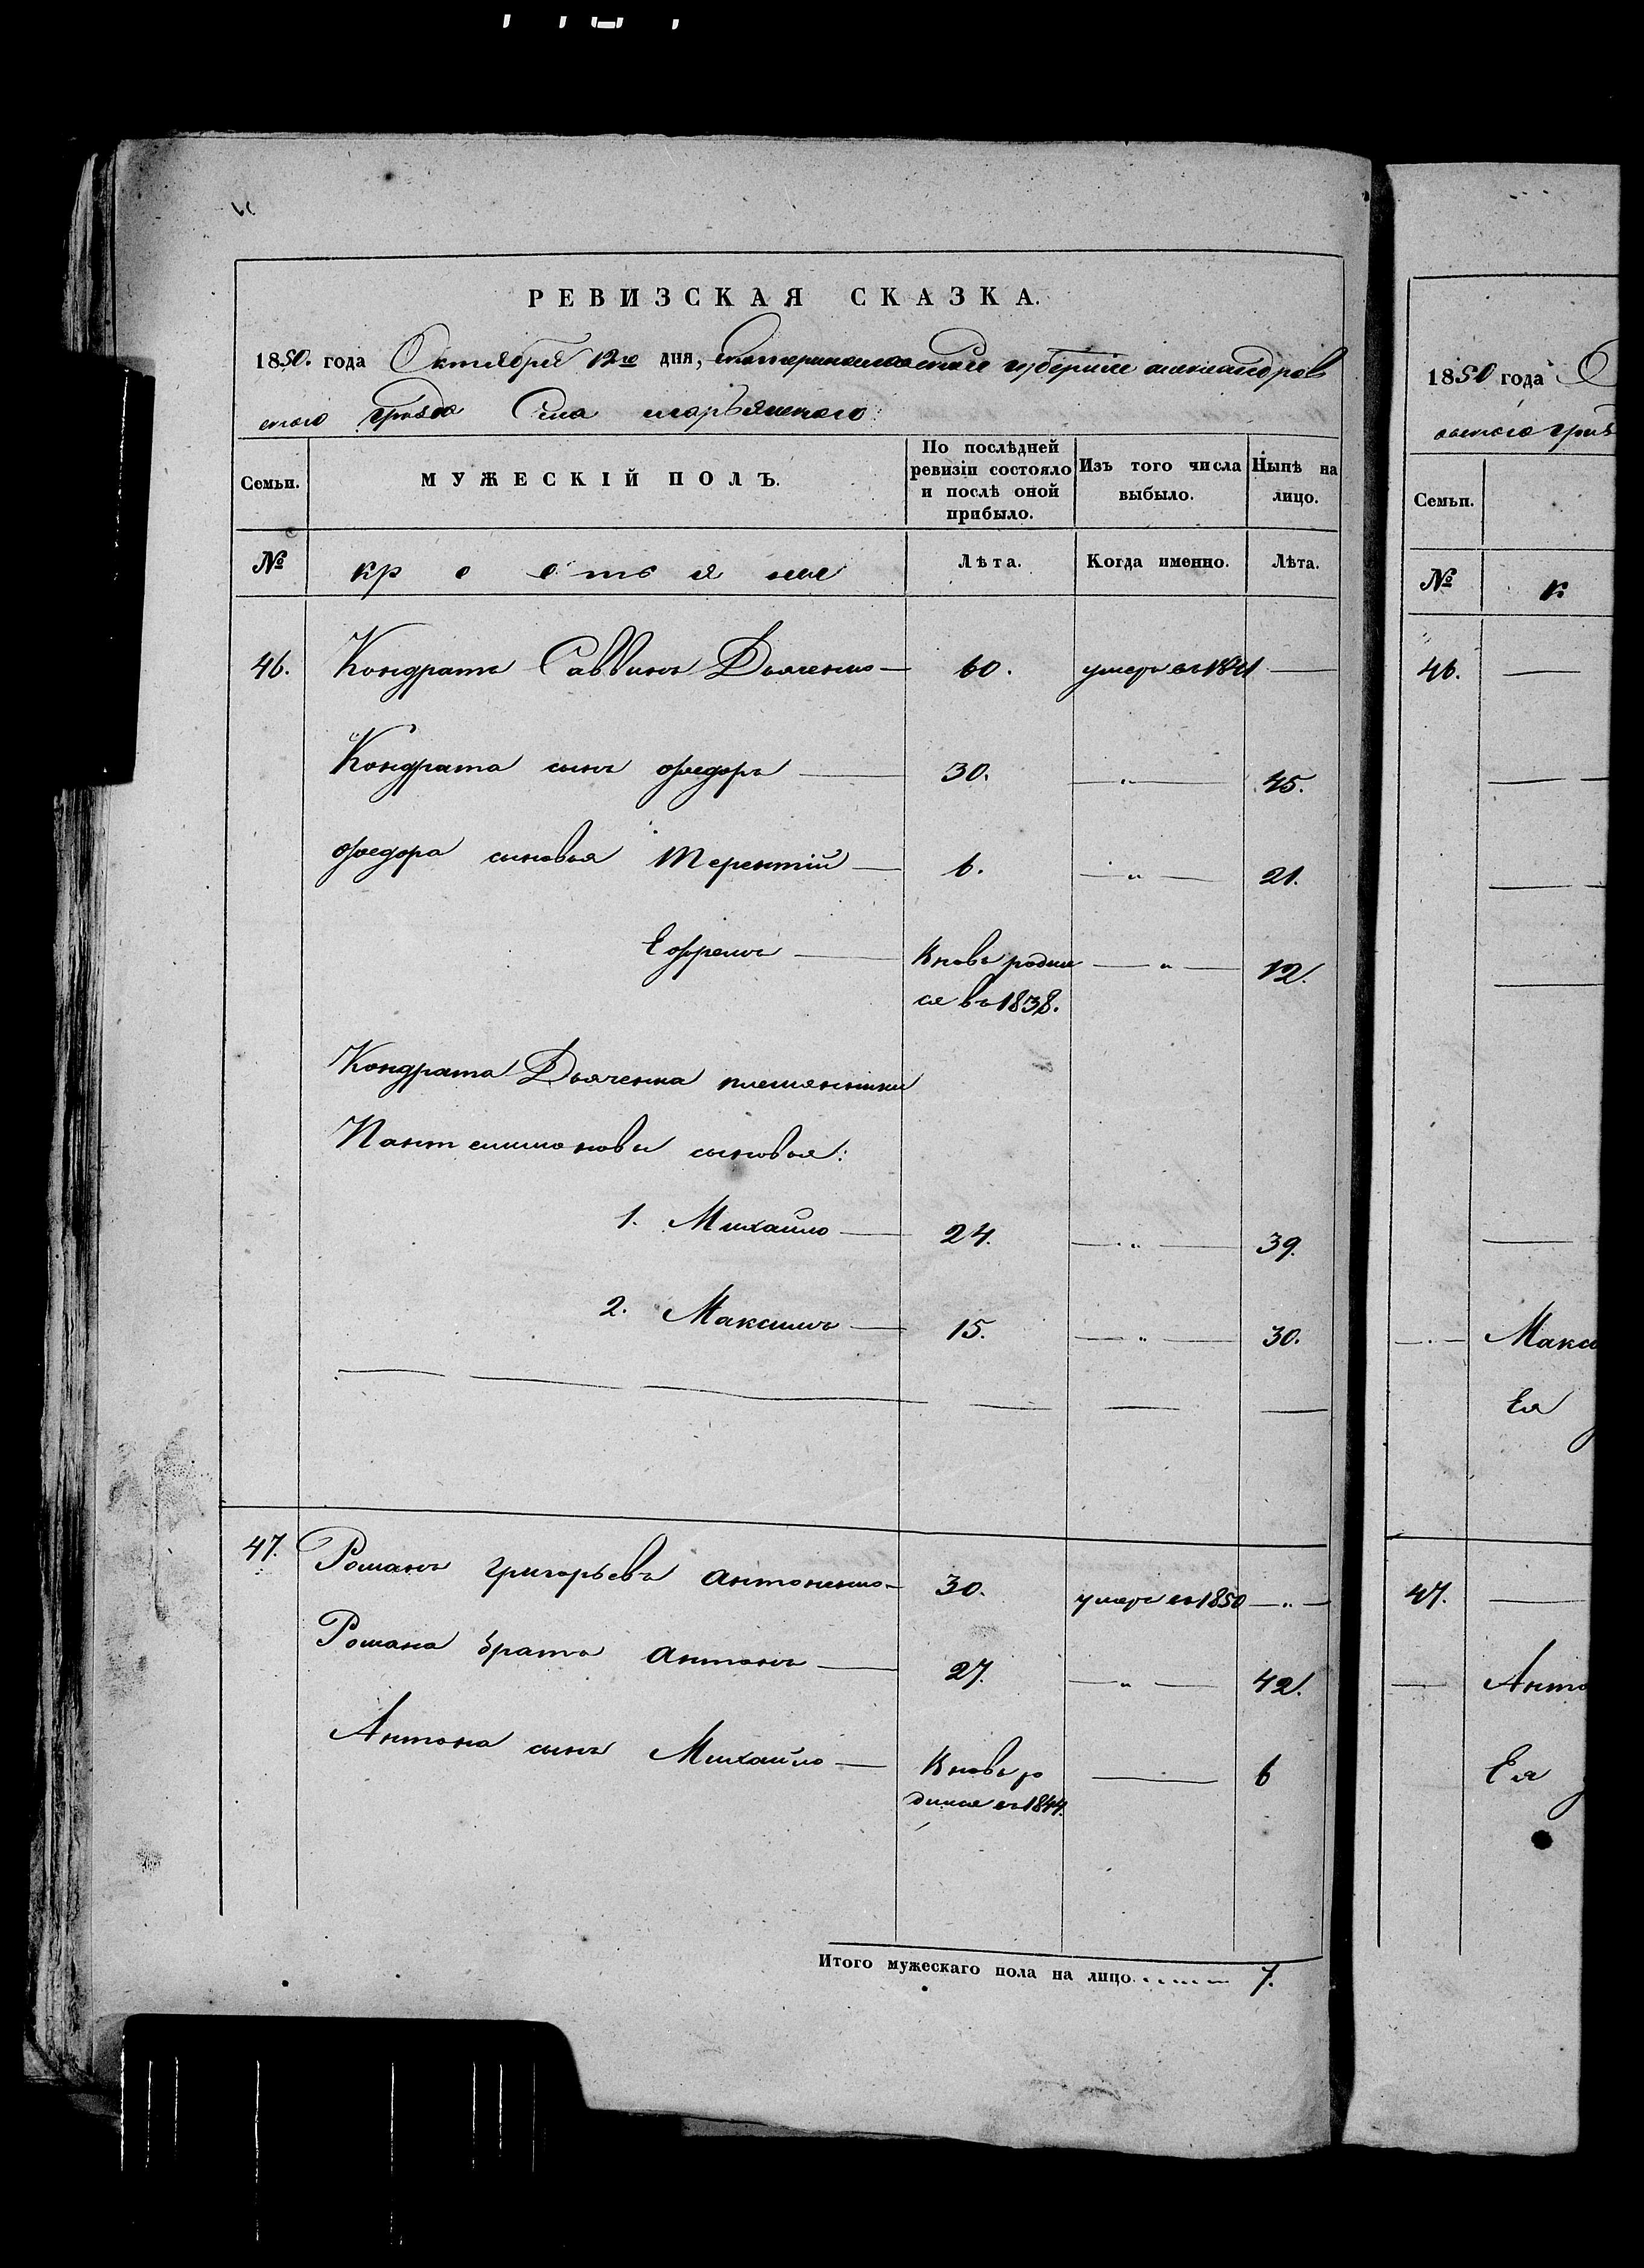 РЕВИЗСКАЯ СКАЗКА.
1850. года Октября 12го дня, екатеринославской губернiи александров
ского уѣзда Села марьянского:
Семьи.
МУЖЕСКІЙ ПОЛЪ.
По послѣдней ревизіи состояло и послѣ оной прибыло.
Изъ того числа выбыло.
Нынѣ на лицо.
№
крестьяне
Лѣта.
Когда именно.
Лѣта.
46. Кондратъ Саввинъ Дьяченко — 60. умеръ въ 1841 —
Кондрата сынъ ѳедоръ — 30. — " — 45.
ѳедора сыновья Терентій — 6. — " — 21.
Ефремъ — Вновь родил — " — 12.
ся въ 1838.
Кондрата Дьяченка племянники
Пантелимоновы сыновья:
1. Михайло — 24. — " — 39.
2. Максимъ — 15. — " — 30.
47. Романъ григорьевъ антоненко — 30. умеръ въ 1850 — " —
Романа братъ антонъ — 27. — " — 42.
Антона сынъ Михайло — Вновь ро — 6
дился въ 1844.
Итого мужескаго пола на лицо 7.
1850 года
Семьи.
№
к
46. —
Макси
Ея
47. —
Анто
Ея